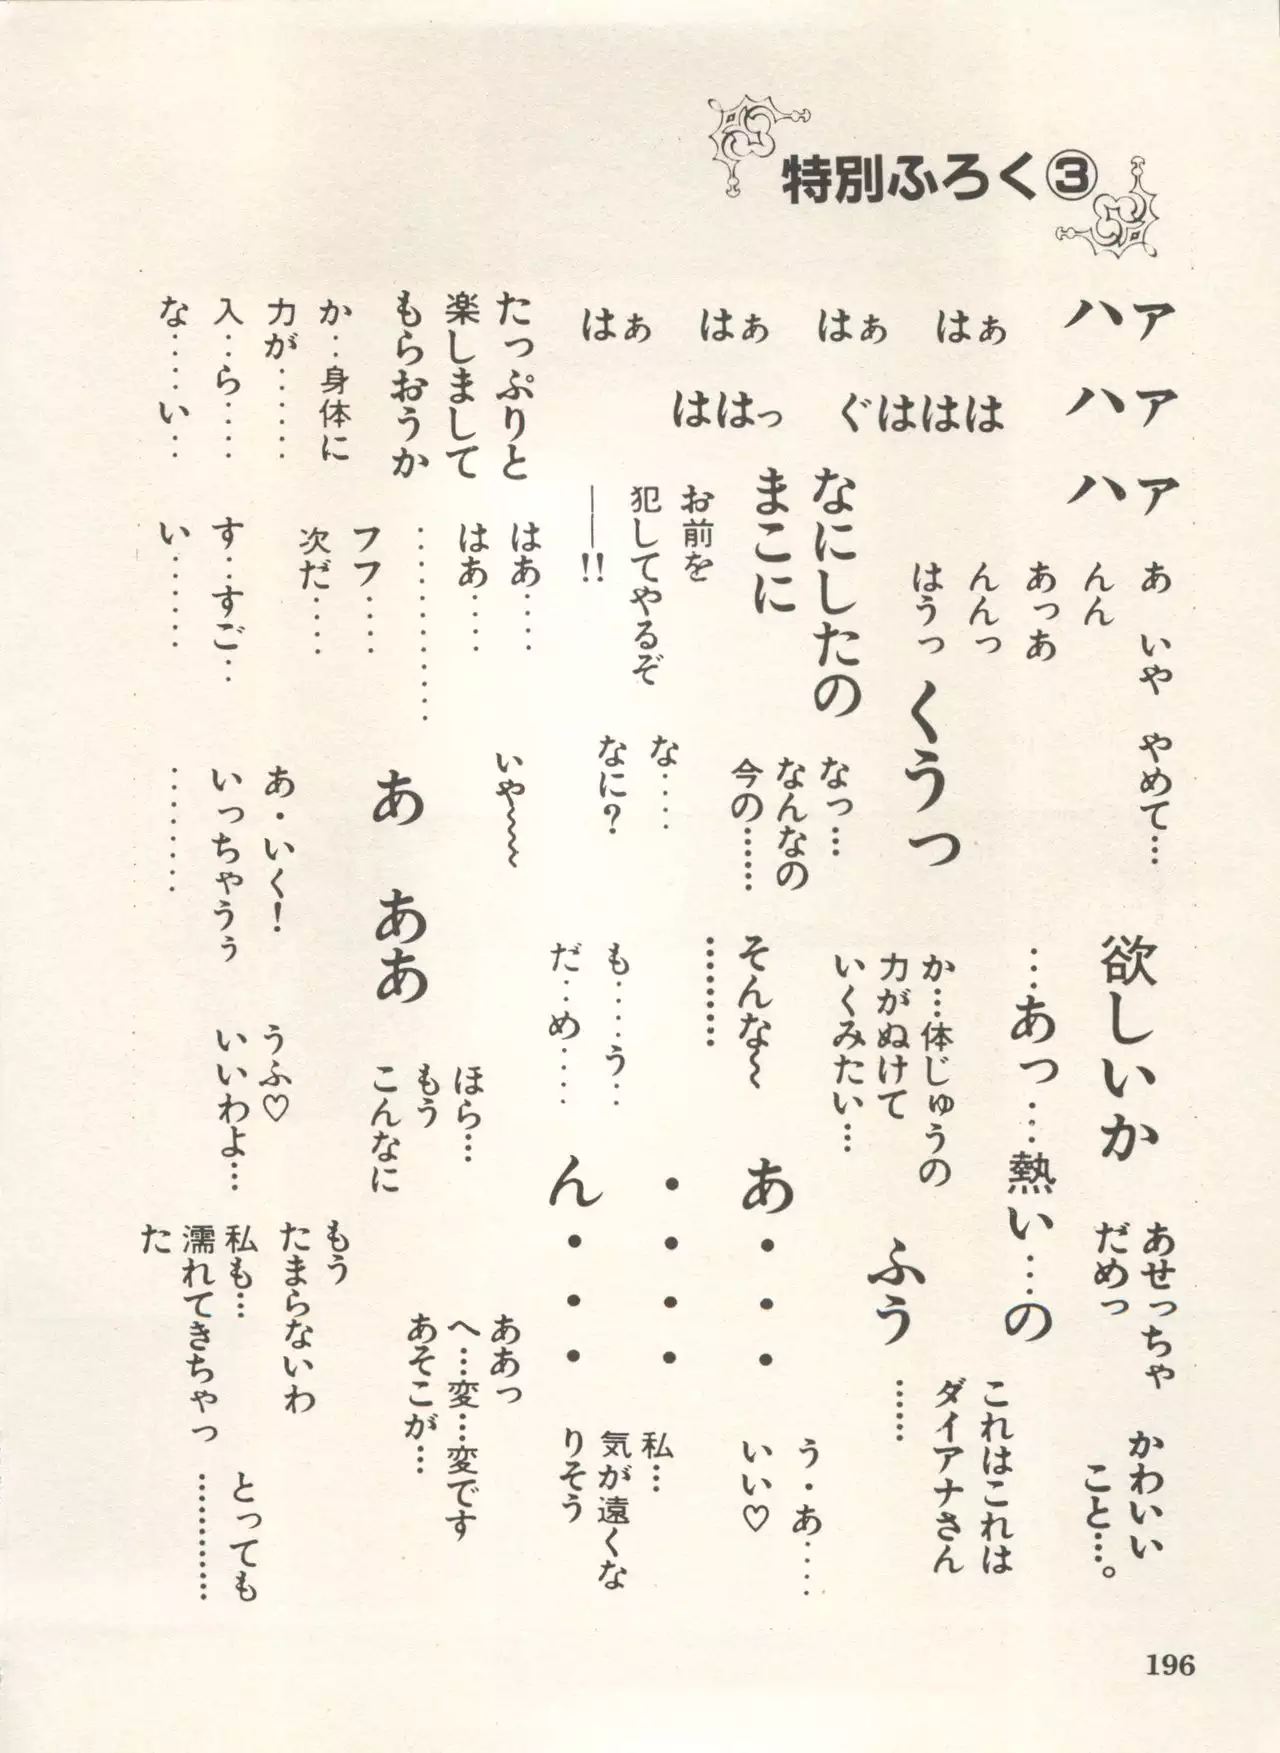 特別ふろく③
ァァァ
ハハハ
はぁ はぁ はぁ はぁ
はははぐ
ははっ
あ いや やめて…
んん
あっあ
んんっ
はうっ
くうっ
なにしたの
まこに
お前を
犯してやるぞ
――!!
たっぷりと
楽しまして
もらおうか
か‥身体に
力が……
入‥ら‥‥
な‥‥い‥
はあ‥‥
はあ‥‥
…………
フフ‥‥
次だ‥‥
す‥すご‥
い……
なっ…
なんなの
今の……
な‥‥
なに?
いや〜〜〜
あ ああ
あ・いく!
いっちゃうぅ
………
欲しいか
…あっ…熱い…の
か…体じゅうの
力がぬけて
いくみたい…
そんな〜
………
も‥‥う‥
だ‥め‥‥
ほら…
もう
こんなに
うふ♡
いいわよ…
あせっちゃ
だめっ
かわいい
こと…。
これはこれは
ダイアナさん
……
ふう
あ・・・
・・・・
ん・・・
う・あ‥‥
いい♡
私…
気が遠くな
りそう
ああっ
へ…変…変です
あそこが…
もう
たまらないわ
私も…
濡れてきちゃっ
た
とっても
…………
196